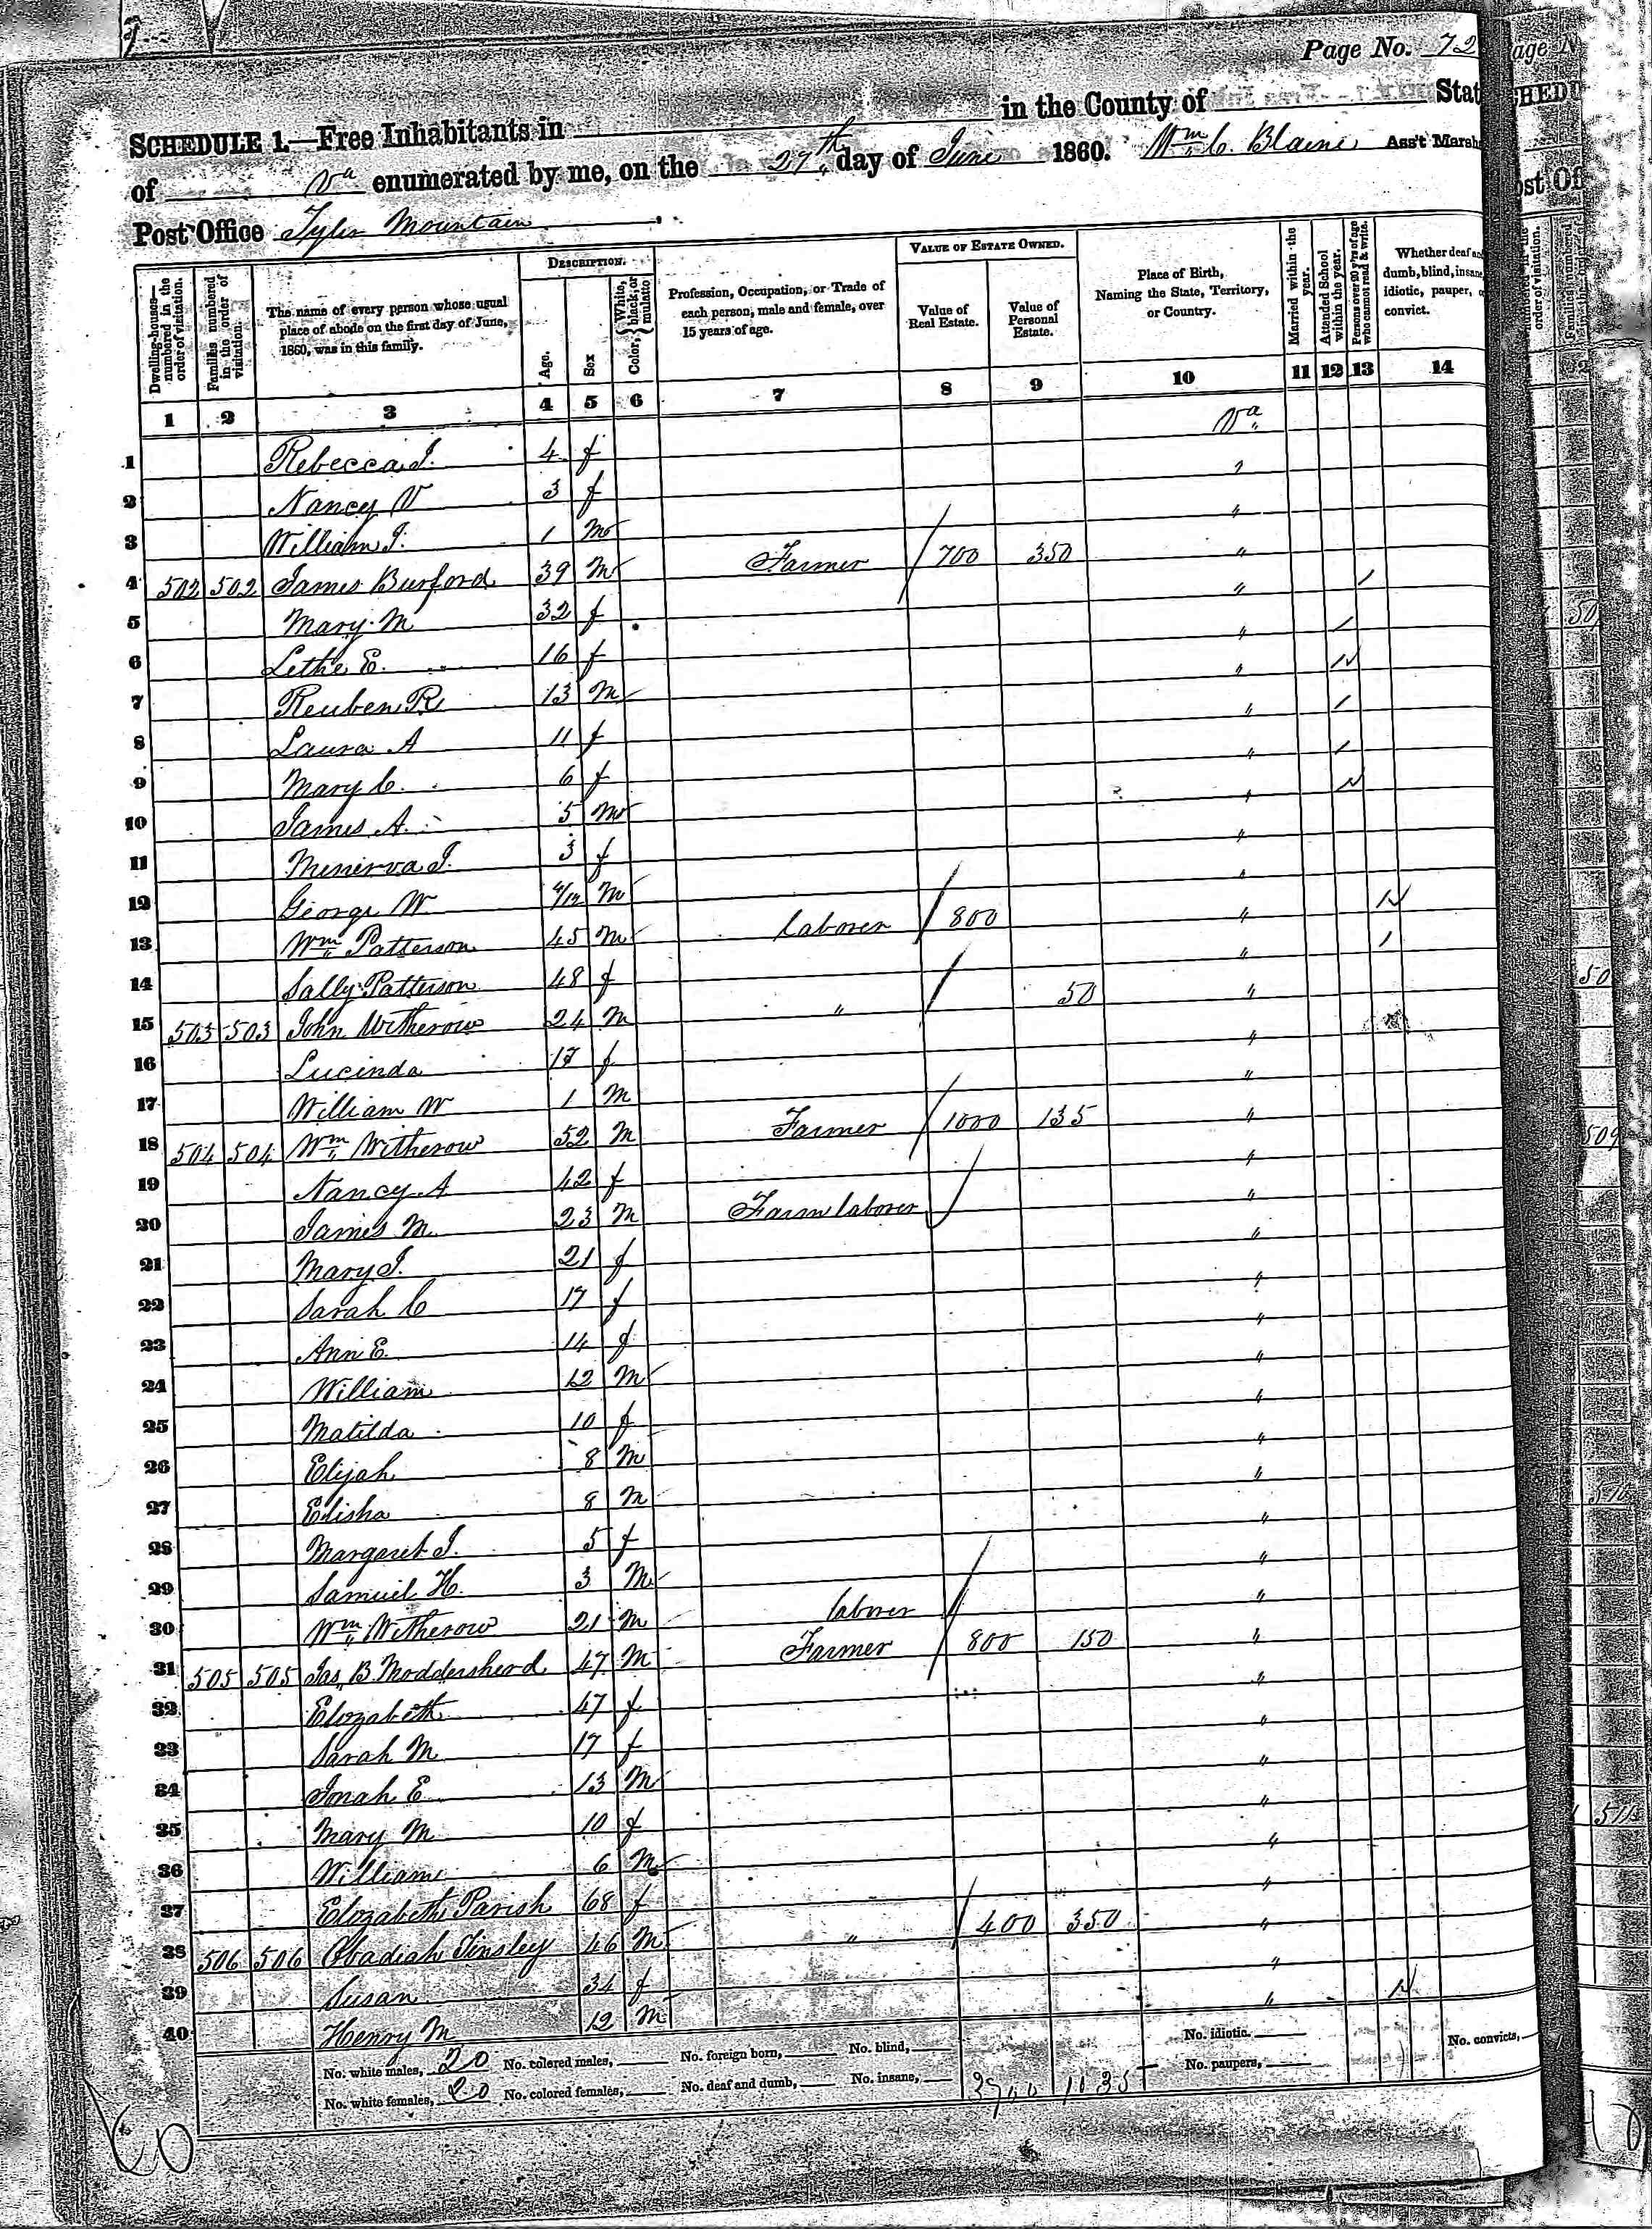 Page No. 72
SCHEDULE 1.—Free Inhabitants in in the County of Stat
of Va enumerated by me, on the 27th day of June 1860. Wm C. Blaine Ass't Marsh
Post Office Tyler Mountain
Dwelling-houses—numbered in the order of visitation.
Families numbered in the order of visitation.
The name of every person whose usual place of abode on the first day of June, 1860, was in this family.
DESCRIPTION.
Age.
Sex
Color, White, black, or mulatto
Profession, Occupation, or Trade of each person, male and female, over 15 years of age.
VALUE OF ESTATE OWNED.
Value of Real Estate.
Value of Personal Estate.
Place of Birth, Naming the State, Territory, or Country.
Married within the year.
Attended School within the year.
Persons over 20 y'rs of age who cannot read & write.
Whether deaf and dumb, blind, insane, idiotic, pauper, or convict.
1 2 3 4 5 6 7 8 9 10 11 12 13 14
1 Rebecca J. 4 f Va
2 Nancy V 3 f "
3 William J. 1 M "
4 502 502 James Burford 39 M Farmer 700 350 "
5 Mary M 32 f " /
6 Lethe E. 16 f " /
7 Reuben R 13 M " /
8 Laura A 11 f " /
9 Mary C. 6 f " /
10 James A. 5 M " /
11 Minerva J. 3 f "
12 George W. 4/12 M "
13 Wm Patterson 45 M laborer 800 " /
14 Sally Patterson 48 f " /
15 503 503 John Witherow 24 M " 50 "
16 Lucinda 17 f "
17 William W 1 M "
18 504 504 Wm Witherow 52 M Farmer 1000 135 "
19 Nancy A 42 f "
20 James M. 23 M Farm laborer "
21 Mary J. 21 f "
22 Sarah C 17 f "
23 Ann E. 14 f "
24 William 12 M "
25 Matilda 10 f "
26 Elijah 8 M "
27 Elisha 8 M "
28 Margaret J. 5 f "
29 Samuel H. 3 M "
30 Wm Witherow 21 M laborer "
31 505 505 Jas. B. Moddersherd 47 M Farmer 800 150 "
32 Elozabeth 47 f "
33 Sarah M 17 f "
34 Jonah E 13 M "
35 Mary M 10 f "
36 William 6 M "
37 Elozabeth Parish 68 f "
38 506 506 Obadiah Tinsley 46 M " 400 350 "
39 Susan 34 f " /
40 Henry M 12 M "
No. white males, 20 No. colored males, No. foreign born, No. blind, No. idiotic. No. convicts,
No. white females, 20 No. colored females, No. deaf and dumb, No. insane, 3700 1035 No. paupers,
60